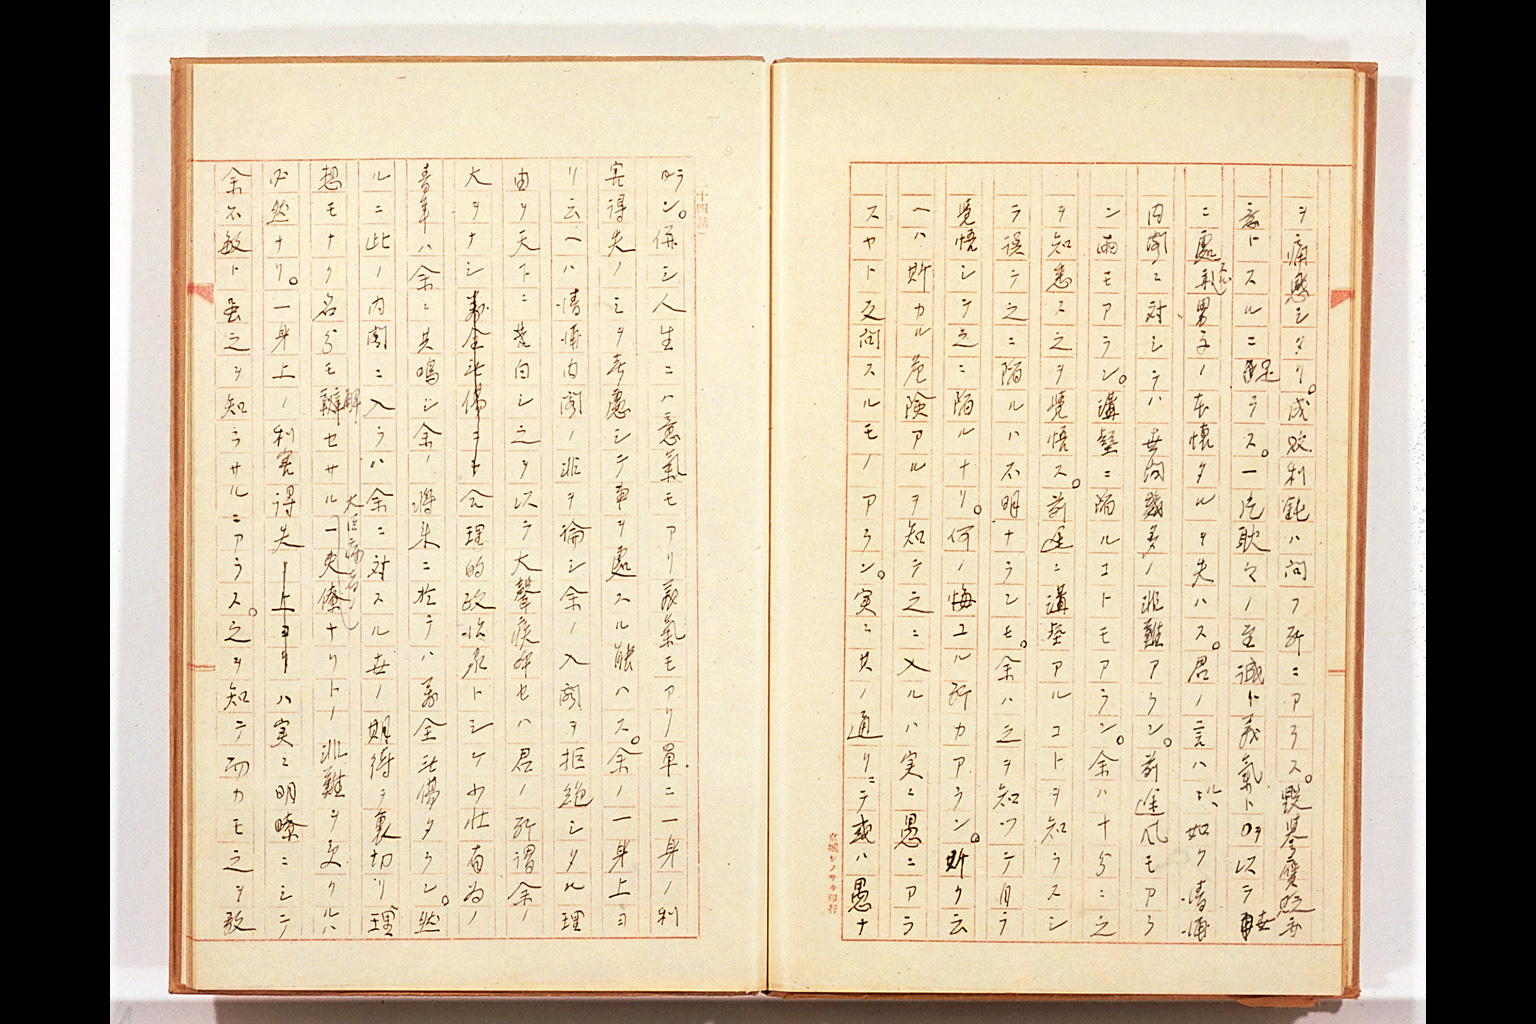 ヲ痛感シタリ。成敗利鈍ハ問フ所ニアラス。毀誉褒貶亦
意トスルニ足ラス。一片耿々ノ至誠ト義気トヲ以テ世
ニ處ス男子ノ本懐タルヲ失ハス。君ノ言ハルヽ如ク清浦
内閣ニ対シテハ世間幾多ノ非難アラン。前途風モアラ
ン雨モアラン。溝壑ニ陥ルコトモアラン。余ハ十分ニ之
ヲ知悉ス之ヲ覚悟ス。前途ニ溝壑アルコトヲ知ラスシ
テ誤テ之ニ陥ルハ不明ナランモ。余ハ之ヲ知ツテ自ラ
覚悟シテ之ニ陥ルナリ。何ノ悔ユル所カアラン。斯ク云
ヘハ斯カル危険アルヲ知テ之ニ入ルハ実ニ愚ニアラ
スヤト反問スルモノアラン。実ニ其ノ通リニテ或ハ愚ナ
京城シノサキ印行
十四
ラン。併シ人生ニハ意氣モアリ義氣モアリ單ニ一身ノ利
害得失ノミヲ考慮シテ事ヲ處スル能ハス。余ノ一身上ヨ
リ云ヘハ清浦内閣ノ非ヲ論シ余ノ入閣ヲ拒絶シタル理
由ヲ天下ニ告白シ之ヲ以テ大聲疾呼セハ君ノ所謂余ノ
大ヲナシ合理的政治家トシテ少壮有為ノ
青年ハ余ニ共鳴シ余ノ将来ニ於テハ万全無傷タラン。然
ルニ此ノ内閣ニ入ラハ余ニ対スル世ノ期待ヲ裏切リ理
想モナク名分モ辨解セサル大臣病者ナリトノ非難ヲ受クルハ
必然ナリ。一身上ノ利害得失ハ実ニ明瞭ニシテ
余不敏ト虽之ヲ知ラサルニアラス。之ヲ知テ而カモ之ヲ敢